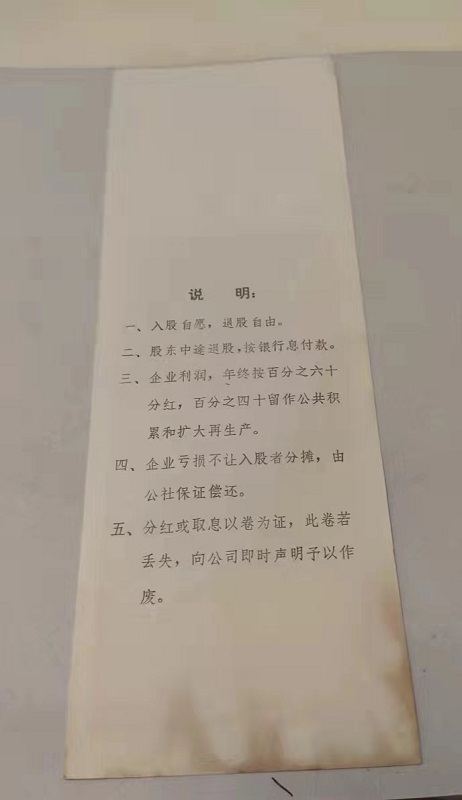 说 明：
一、入股自愿，退股自由。
二、股东中途退股，按银行息付款。
三、企业利润，年终按百分之六十
分红，百分之四十留作公共积
累和扩大再生产。
四、企业亏损不让入股者分摊，由
公社保证偿还。
五、分红或取息以卷为证，此卷若
丢失，向公司即时声明予以作
废。